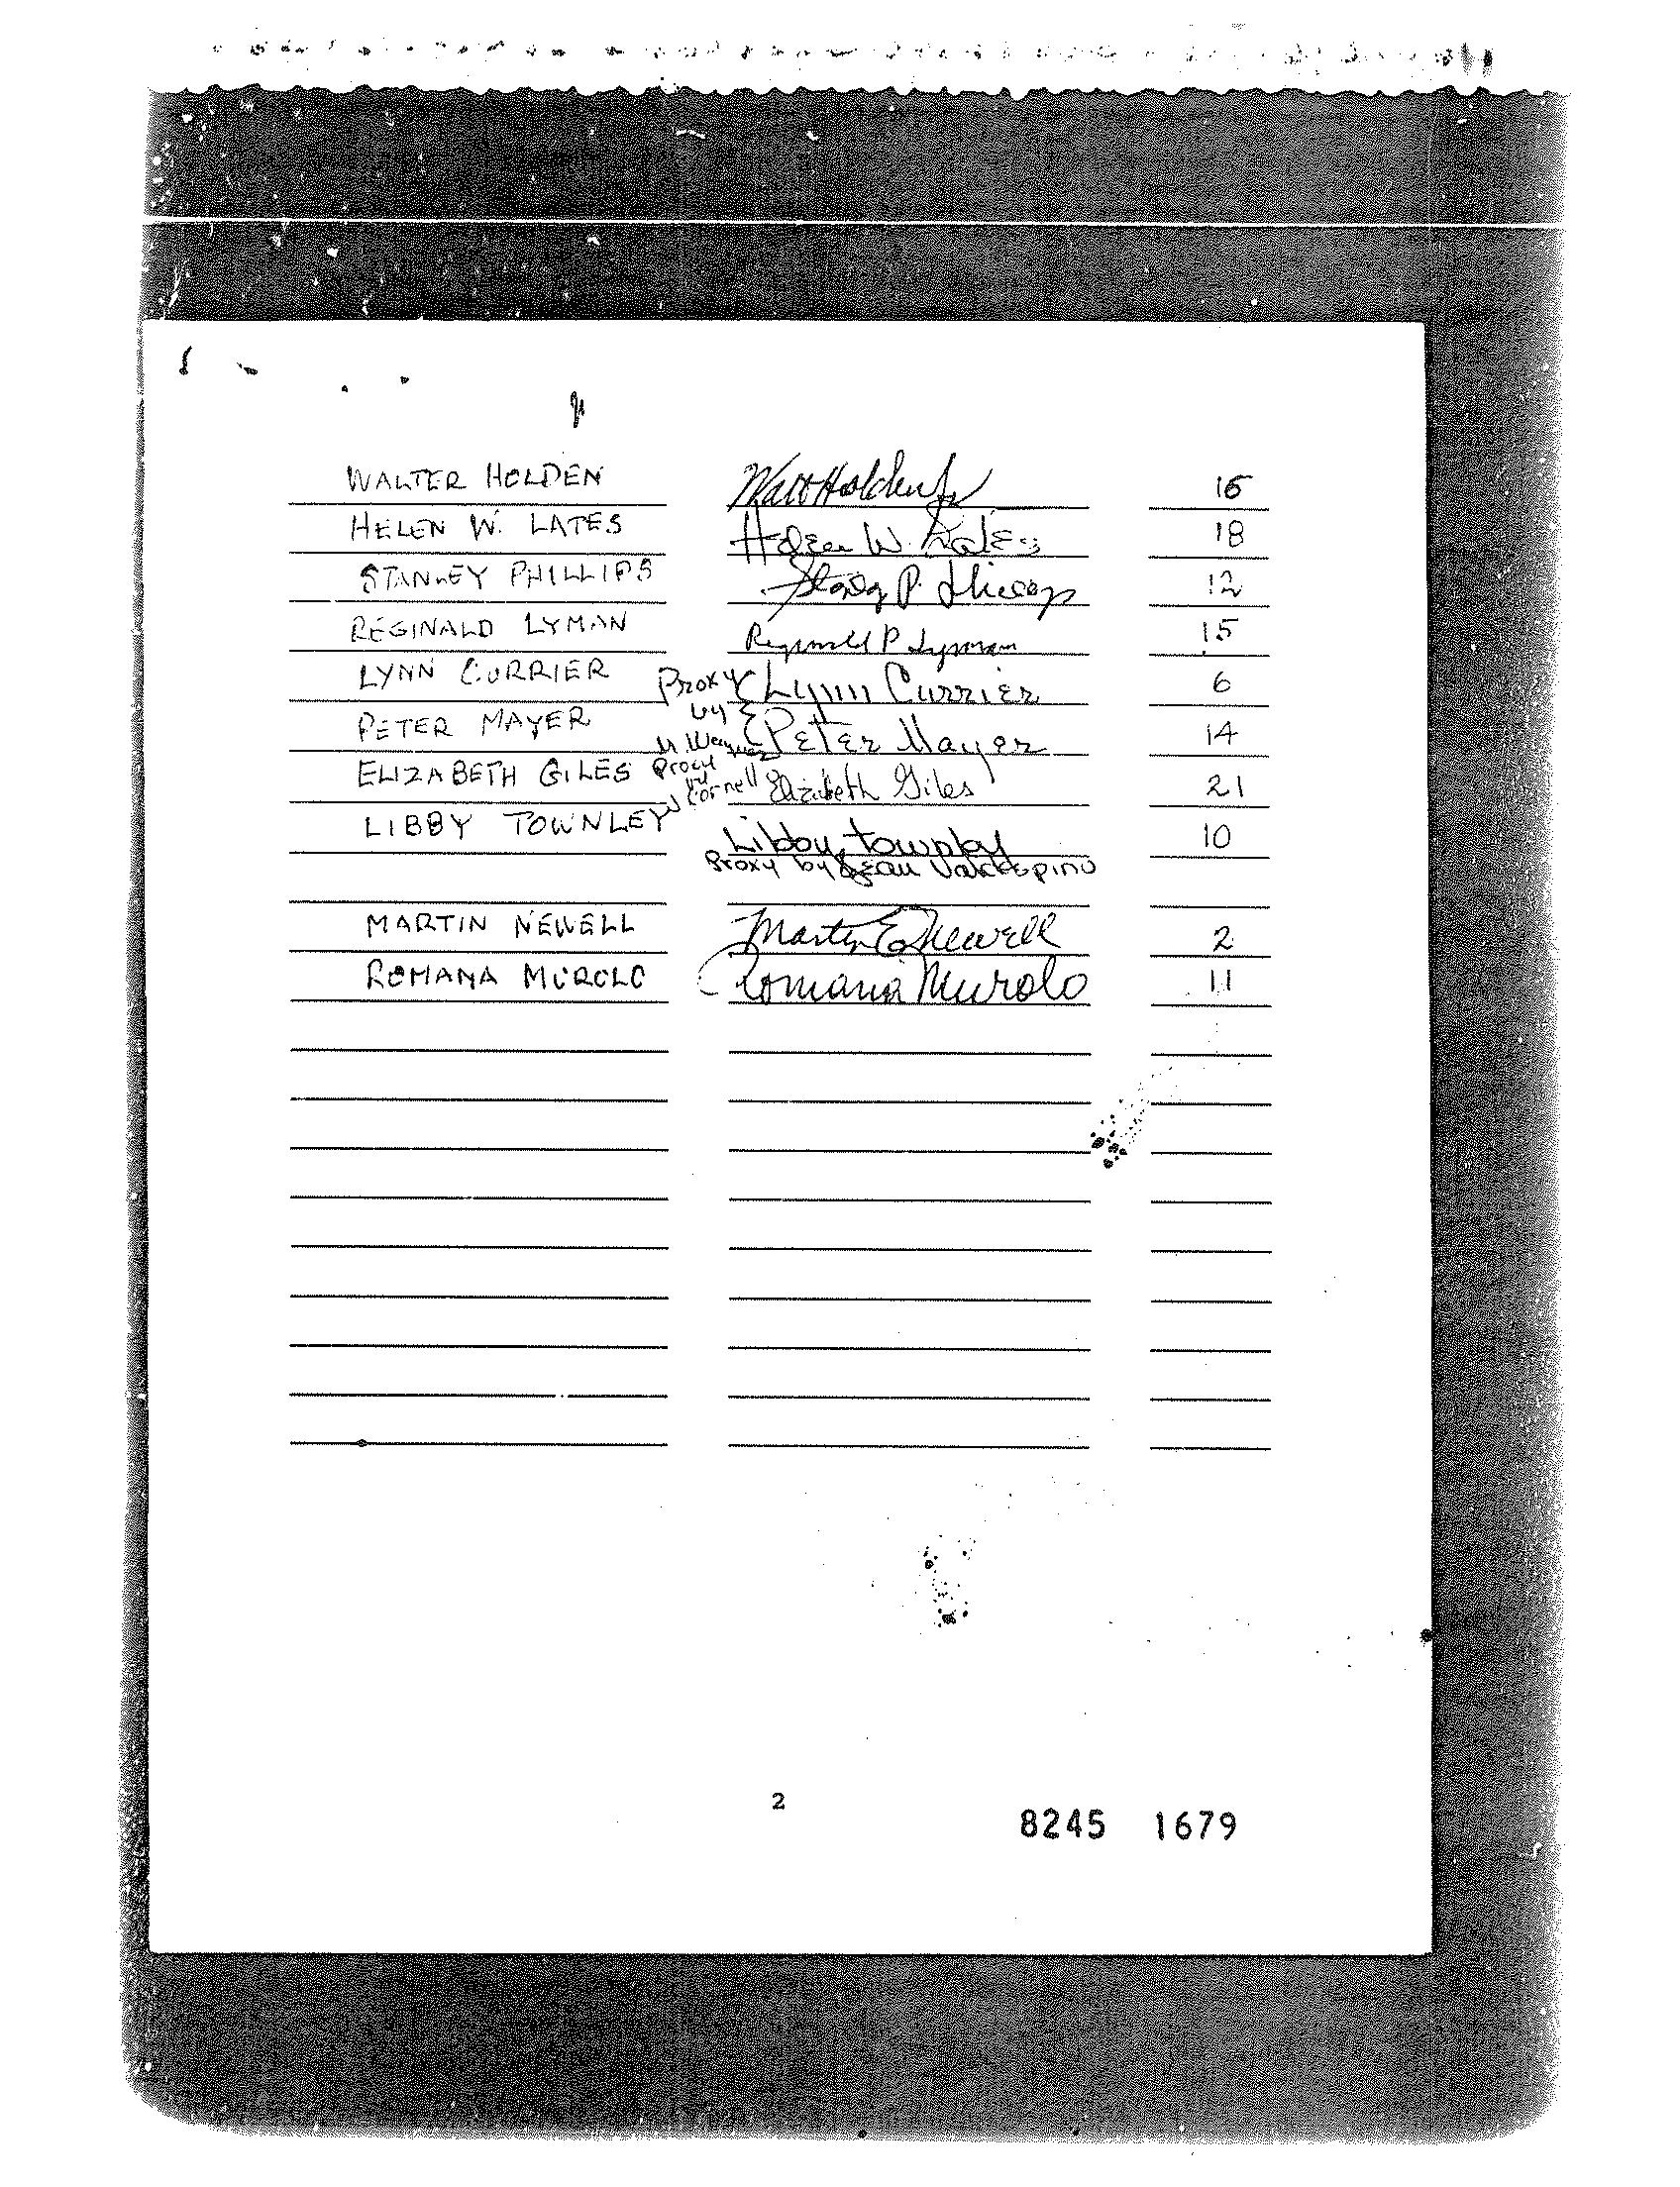 WALTER HOLDEN Walt Holden Jr 16
HELEN W. LATES Helen W. Lates 18
STANLEY PHILLIPS P. 12
REGINALD LYMAN Reginald P Lyman 15
LYNN CURRIER Proxy Lynn Currier 6
by
PETER MAYER Peter Mayer 14
ELIZABETH GILES Proxy Elizabeth Giles 21
by
Cornell
LIBBY TOWNLEY Libby Townley 10
Proxy by Jean
MARTIN NEWELL Martin E Newell 2
ROMANA MUROLO Romana Murolo 11
2
8245 1679